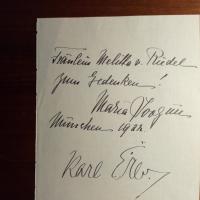 Fräulein Melitta v. Riedel
zum Gedenken!
Maria Ivogün
München
Karl Erb.